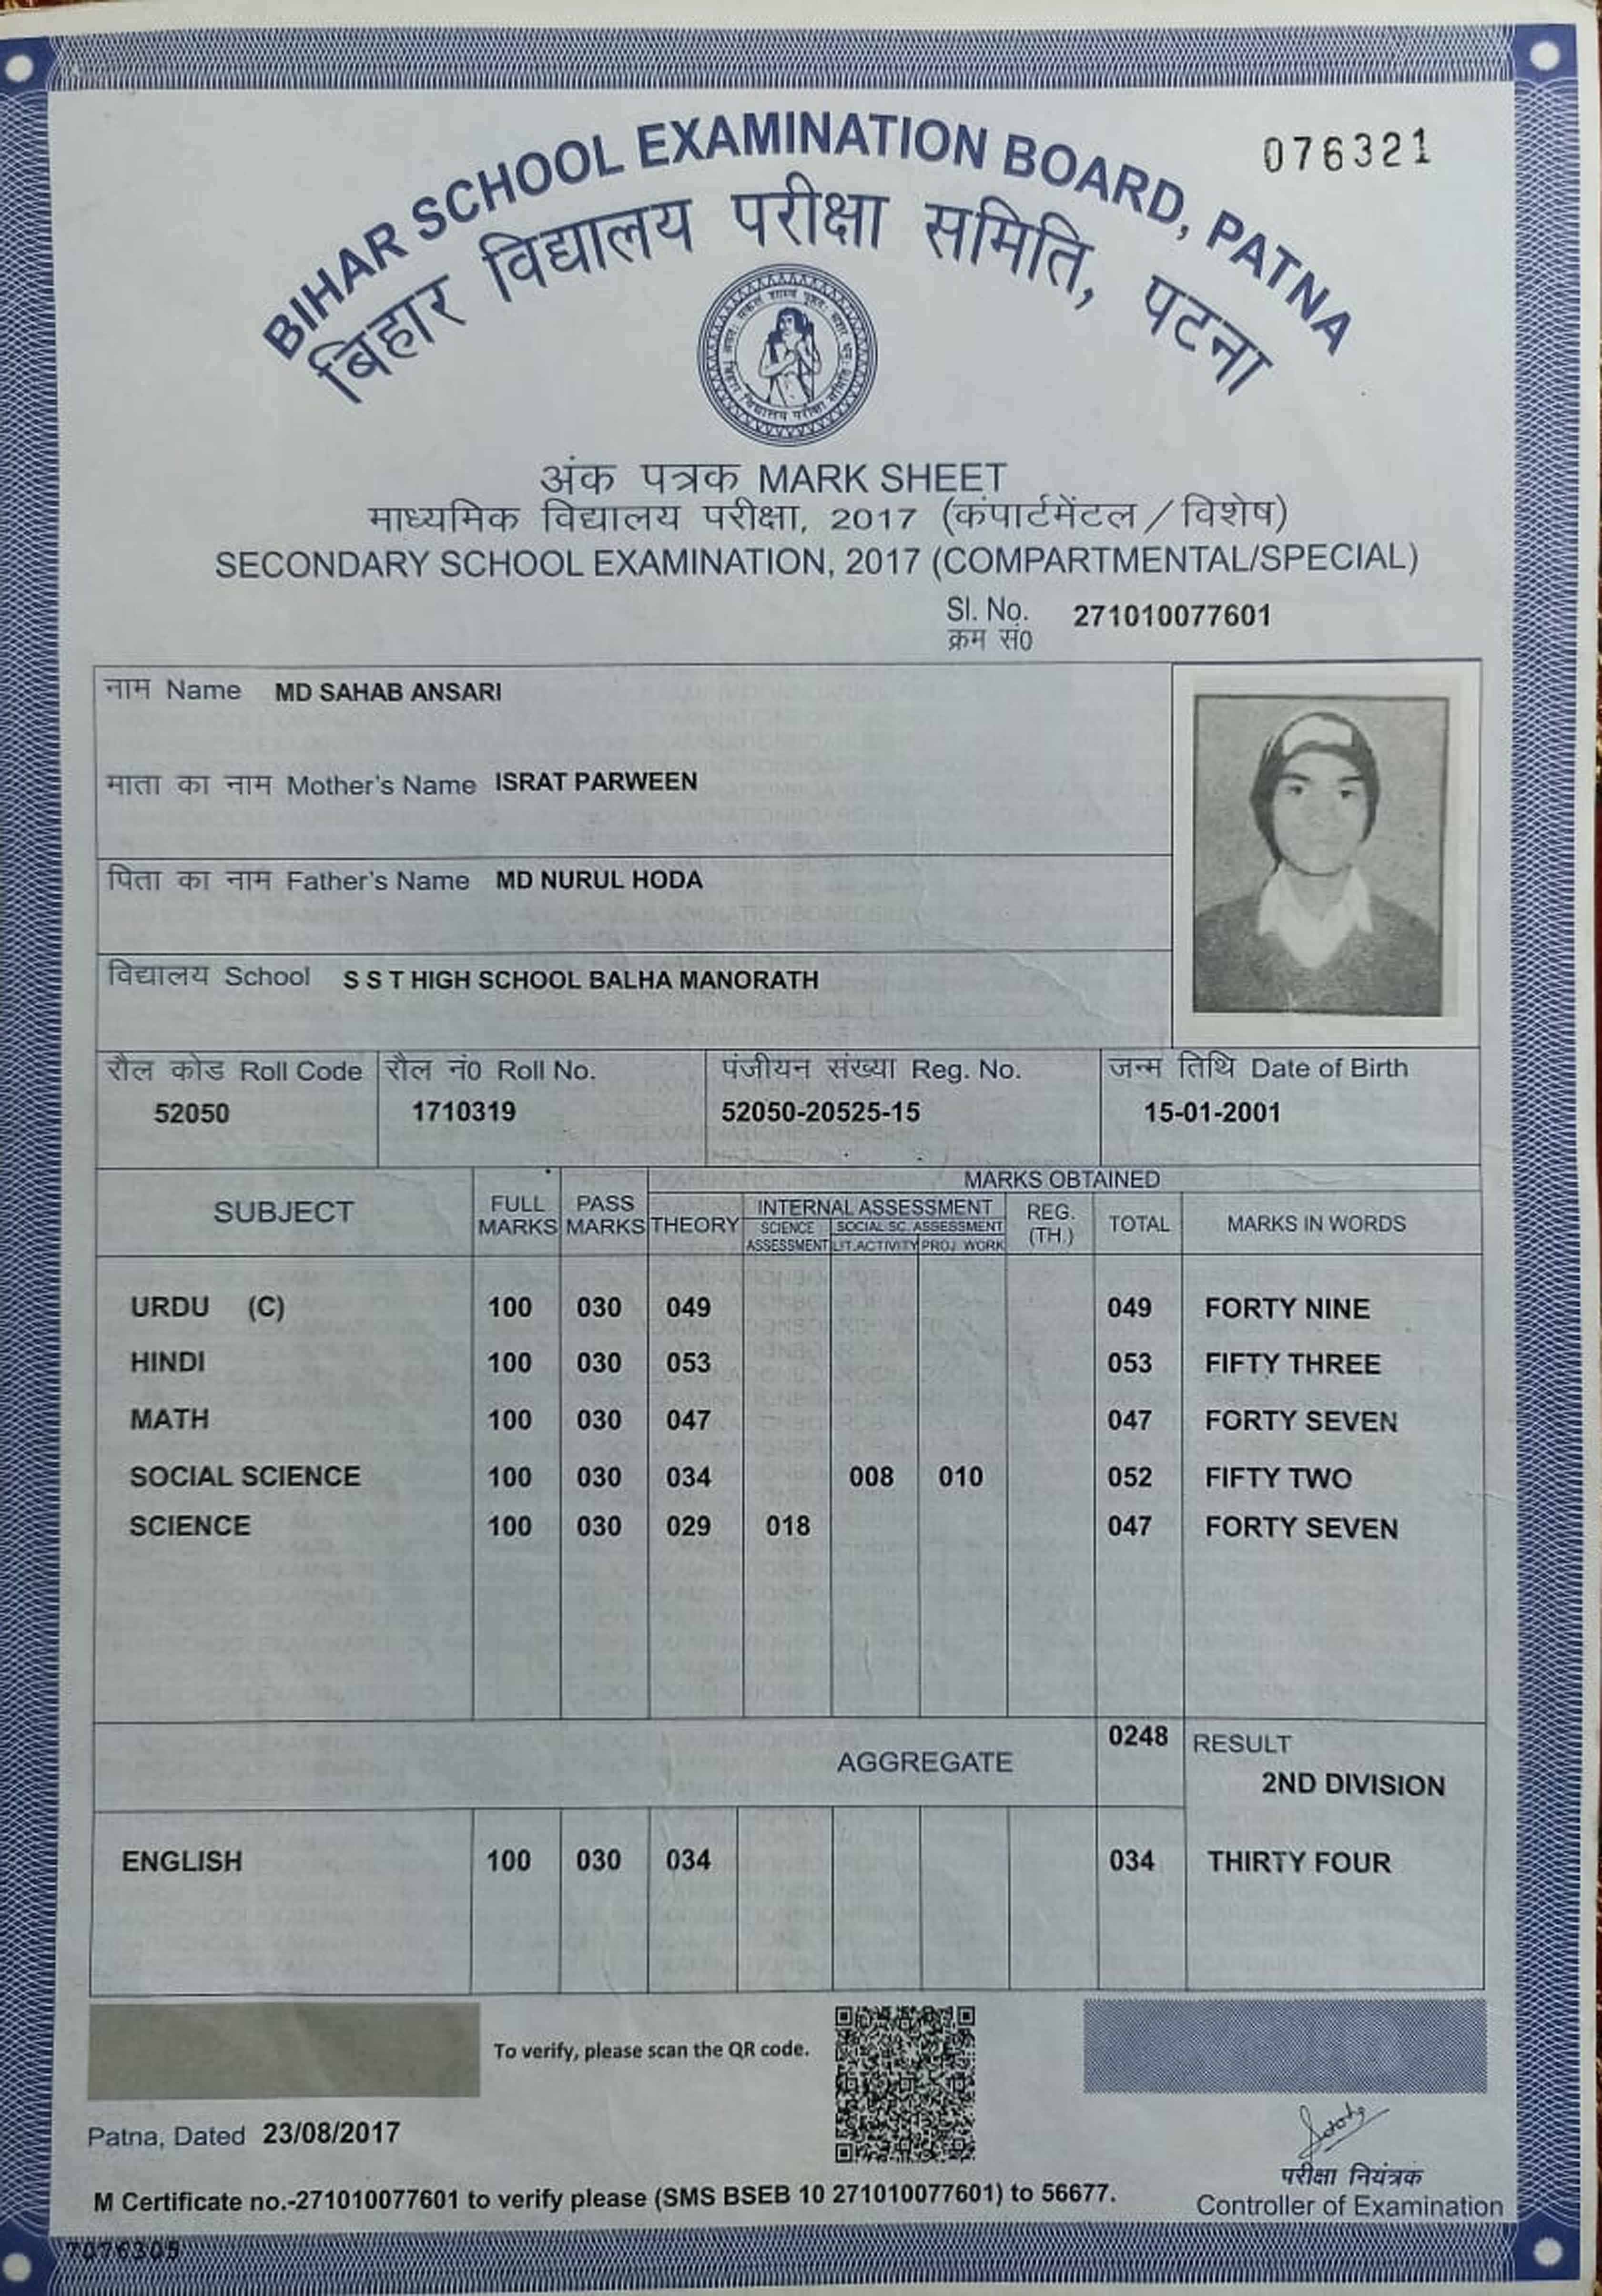 076321
BIHAR SCHOOL EXAMINATION BOARD, PATNA
बिहार विद्यालय परीक्षा समिति, पटना
अंक पत्रक MARK SHEET
माध्यमिक विद्यालय परीक्षा, 2017 (कंपार्टमेंटल / विशेष)
SECONDARY SCHOOL EXAMINATION, 2017 (COMPARTMENTAL/SPECIAL)
Sl. No. 271010077601
क्रम सं0
नाम Name MD SAHAB ANSARI
माता का नाम Mother's Name ISRAT PARWEEN
पिता का नाम Father's Name MD NURUL HODA
विद्यालय School S S T HIGH SCHOOL BALHA MANORATH
रौल कोड Roll Code रौल नं0 Roll No. पंजीयन संख्या Reg. No. जन्म तिथि Date of Birth
52050 1710319 52050-20525-15 15-01-2001
MARKS OBTAINED
SUBJECT FULL MARKS PASS MARKS THEORY INTERNAL ASSESSMENT REG. (TH.) TOTAL MARKS IN WORDS
SCIENCE ASSESSMENT SOCIAL SC. ASSESSMENT
LIT.ACTIVITY PROJ. WORK
URDU (C) 100 030 049 049 FORTY NINE
HINDI 100 030 053 053 FIFTY THREE
MATH 100 030 047 047 FORTY SEVEN
SOCIAL SCIENCE 100 030 034 008 010 052 FIFTY TWO
SCIENCE 100 030 029 018 047 FORTY SEVEN
AGGREGATE 0248 RESULT
2ND DIVISION
ENGLISH 100 030 034 034 THIRTY FOUR
To verify, please scan the QR code.
Patna, Dated 23/08/2017
परीक्षा नियंत्रक
Controller of Examination
M Certificate no.-271010077601 to verify please (SMS BSEB 10 271010077601) to 56677.
7076305